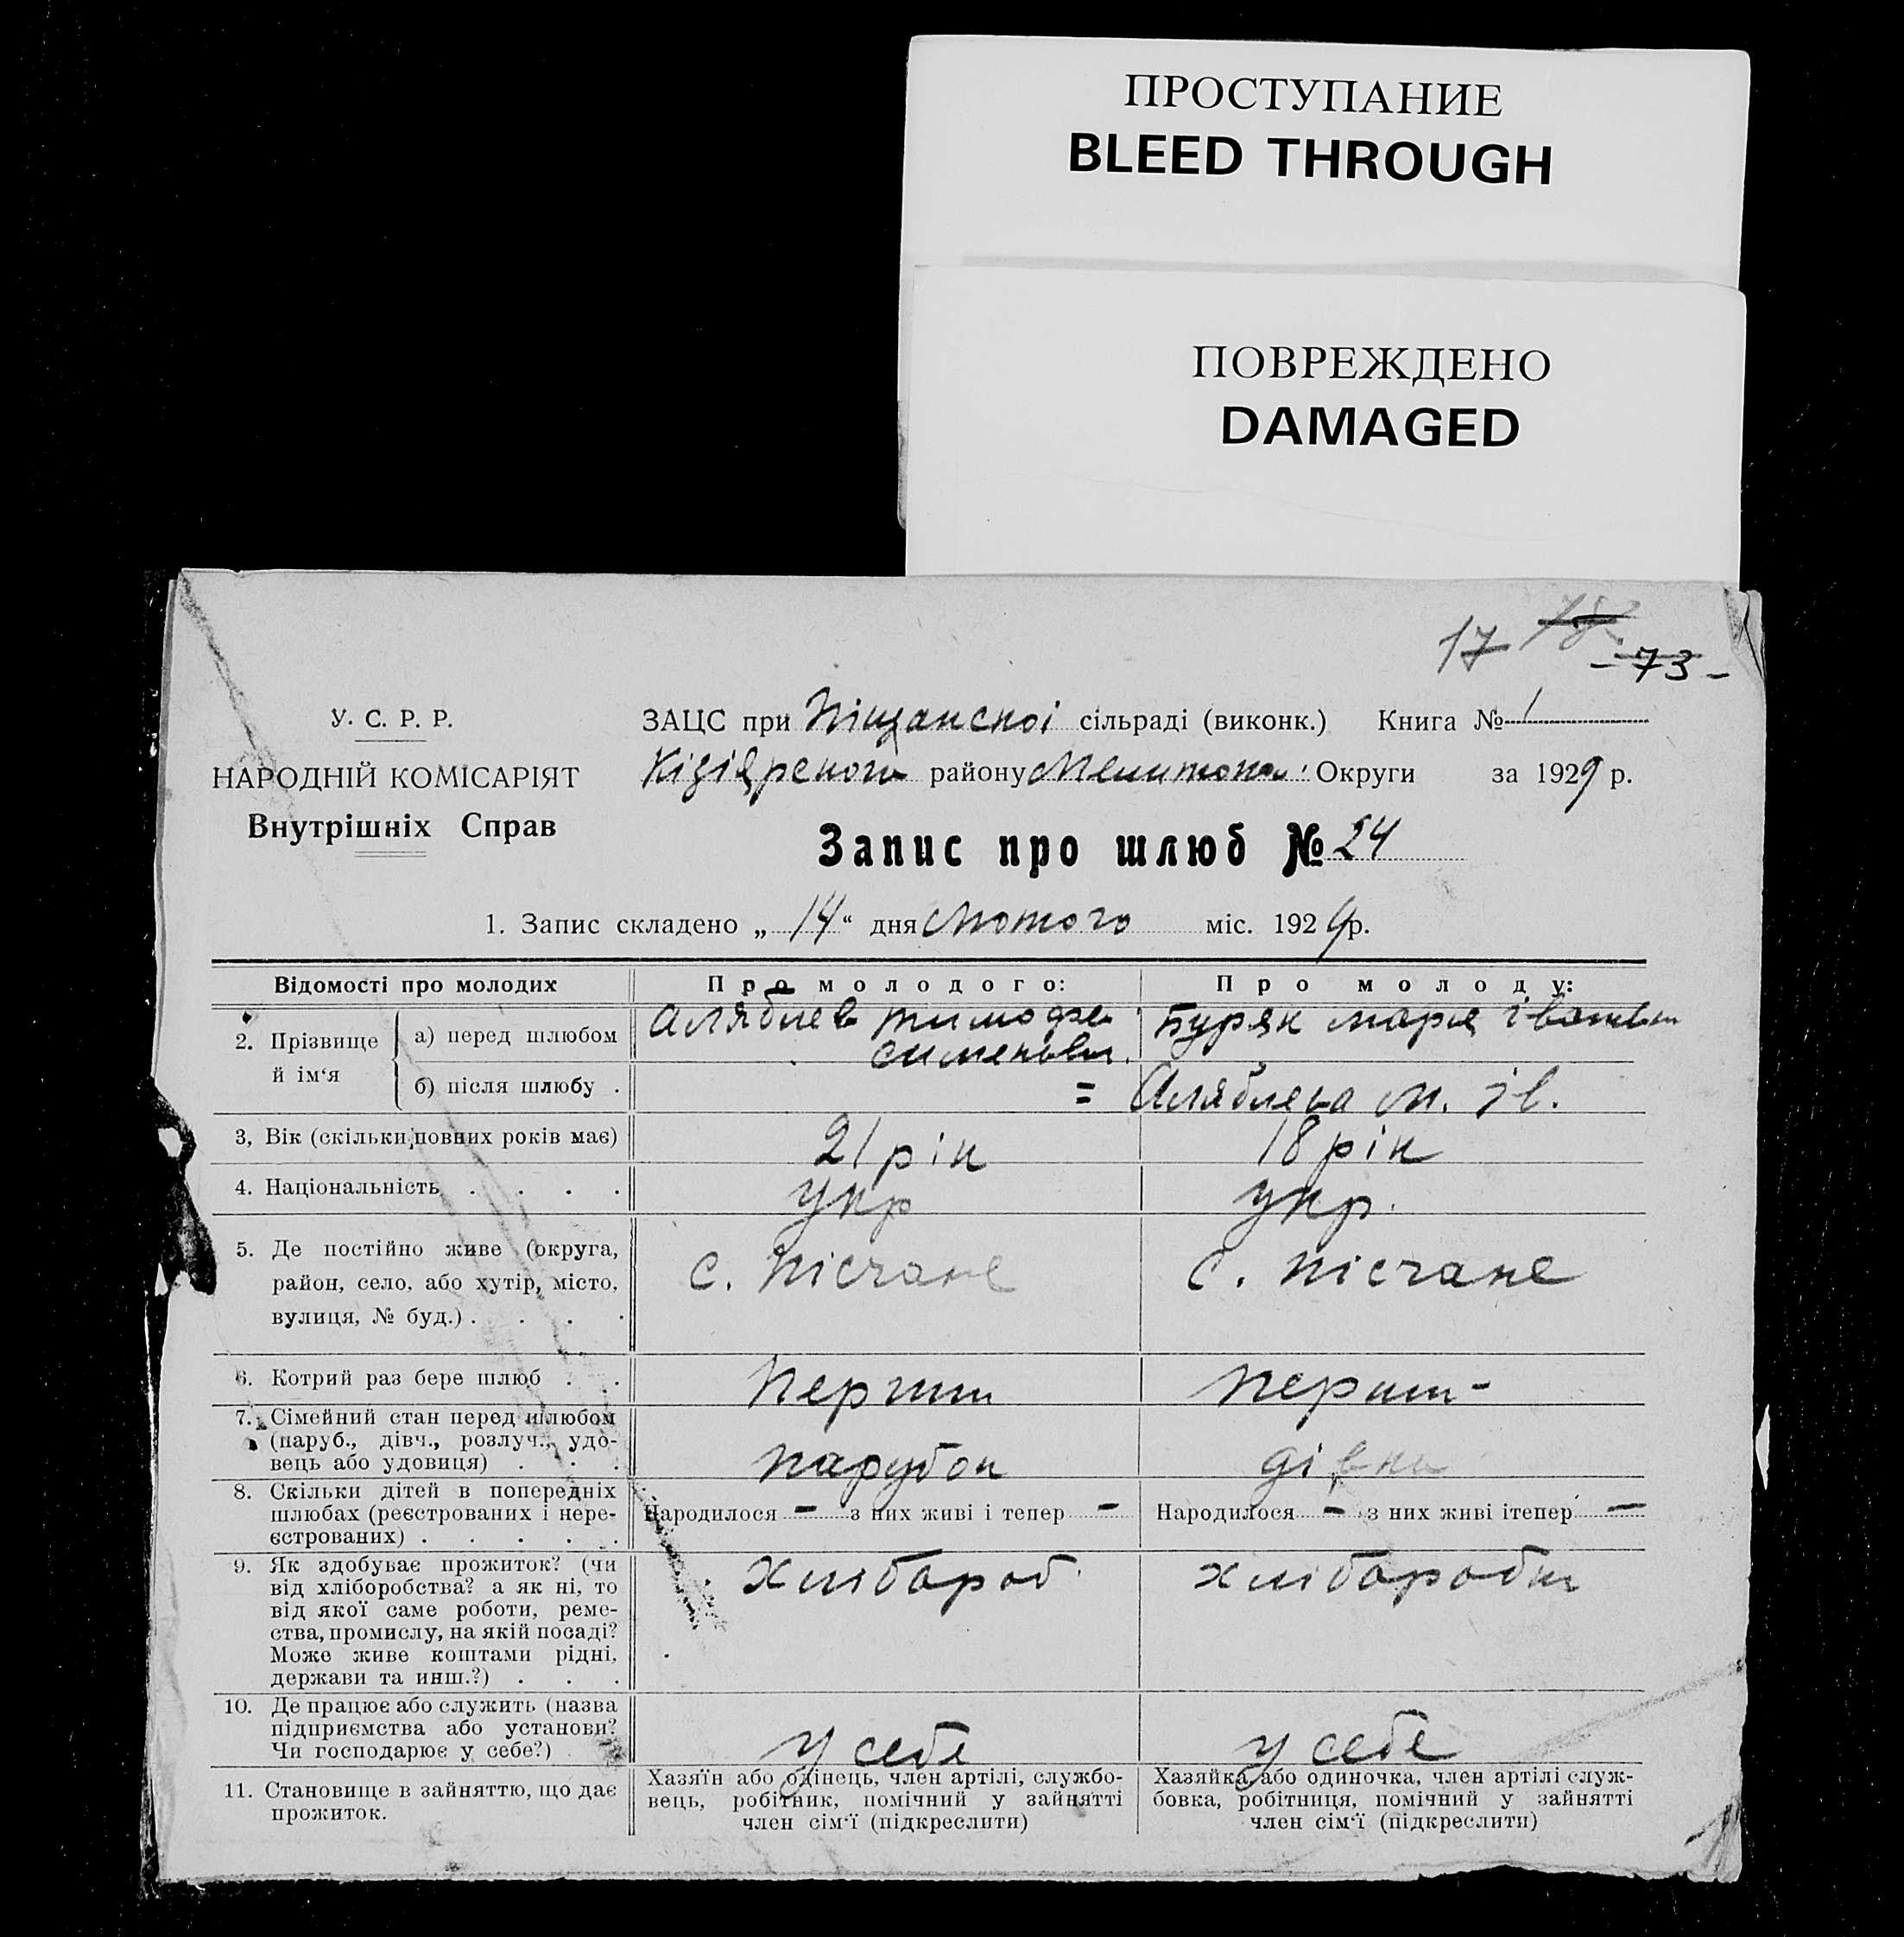 ПРОСТУПАНИЕ
BLEED THROUGH
ПОВРЕЖДЕНО
DAMAGED
17 78
- 73 -
У. С. Р. Р.
НАРОДНІЙ КОМІСАРІЯТ
Внутрішніх Справ
ЗАЦС при Піщанской сільраді (виконк.) Книга № 1
району Округи за 1929 р.
Запис про шлюб № 24
1. Запис складено „ 14 “ дня Лютого міс. 1929 р.
Відомості про молодих
Про молодого:
Про молоду:
2. Прізвище й ім‘я
а) перед шлюбом
Аляблев Тимофе
Сименович
Буряк Марія Іванівн
б) після шлюбу .
= Аляблева М. Ів.
3, Вік (скільки повних років має)
21 рік
18 рік
4. Національність . . . .
Укр
Укр.
5. Де постійно живе (округа,
район, село, або хутір, місто,
вулиця, № буд.) . . . .
с. Пісчане
с. Пісчане
6. Котрий раз бере шлюб . .
Перший
перши-
7. Сімейний стан перед шлюбом
(паруб., дівч., розлуч., удо-
вець або удовиця) . . .
парубок
дівка
8. Скільки дітей в попередніх
шлюбах (реєстрованих і нере-
єстрованих) . . . . .
Народилося - з них живі і тепер -
Народилося - з них живі ітепер -
9. Як здобуває прожиток? (чи
від хліборобства? а як ні, то
від якої саме роботи, реме-
ства, промислу, на якій посаді?
Може живе коштами рідні,
держави та инш.?) . . .
хліборob
хлібороби
10. Де працює або служить (назва
підприємства або установи?
Чи господарює у себе?) .
у себе
у себе
11. Становище в зайняттю, що дає
прожиток.
Хазяїн або одінець, член артілі, службо-
вець, робітник, помічний у зайнятті
член сім‘ї (підкреслити)
Хазяйка або одиночка, член артілі служ-
бовка, робітниця, помічний у зайнятті
член сім‘ї (підкреслити)